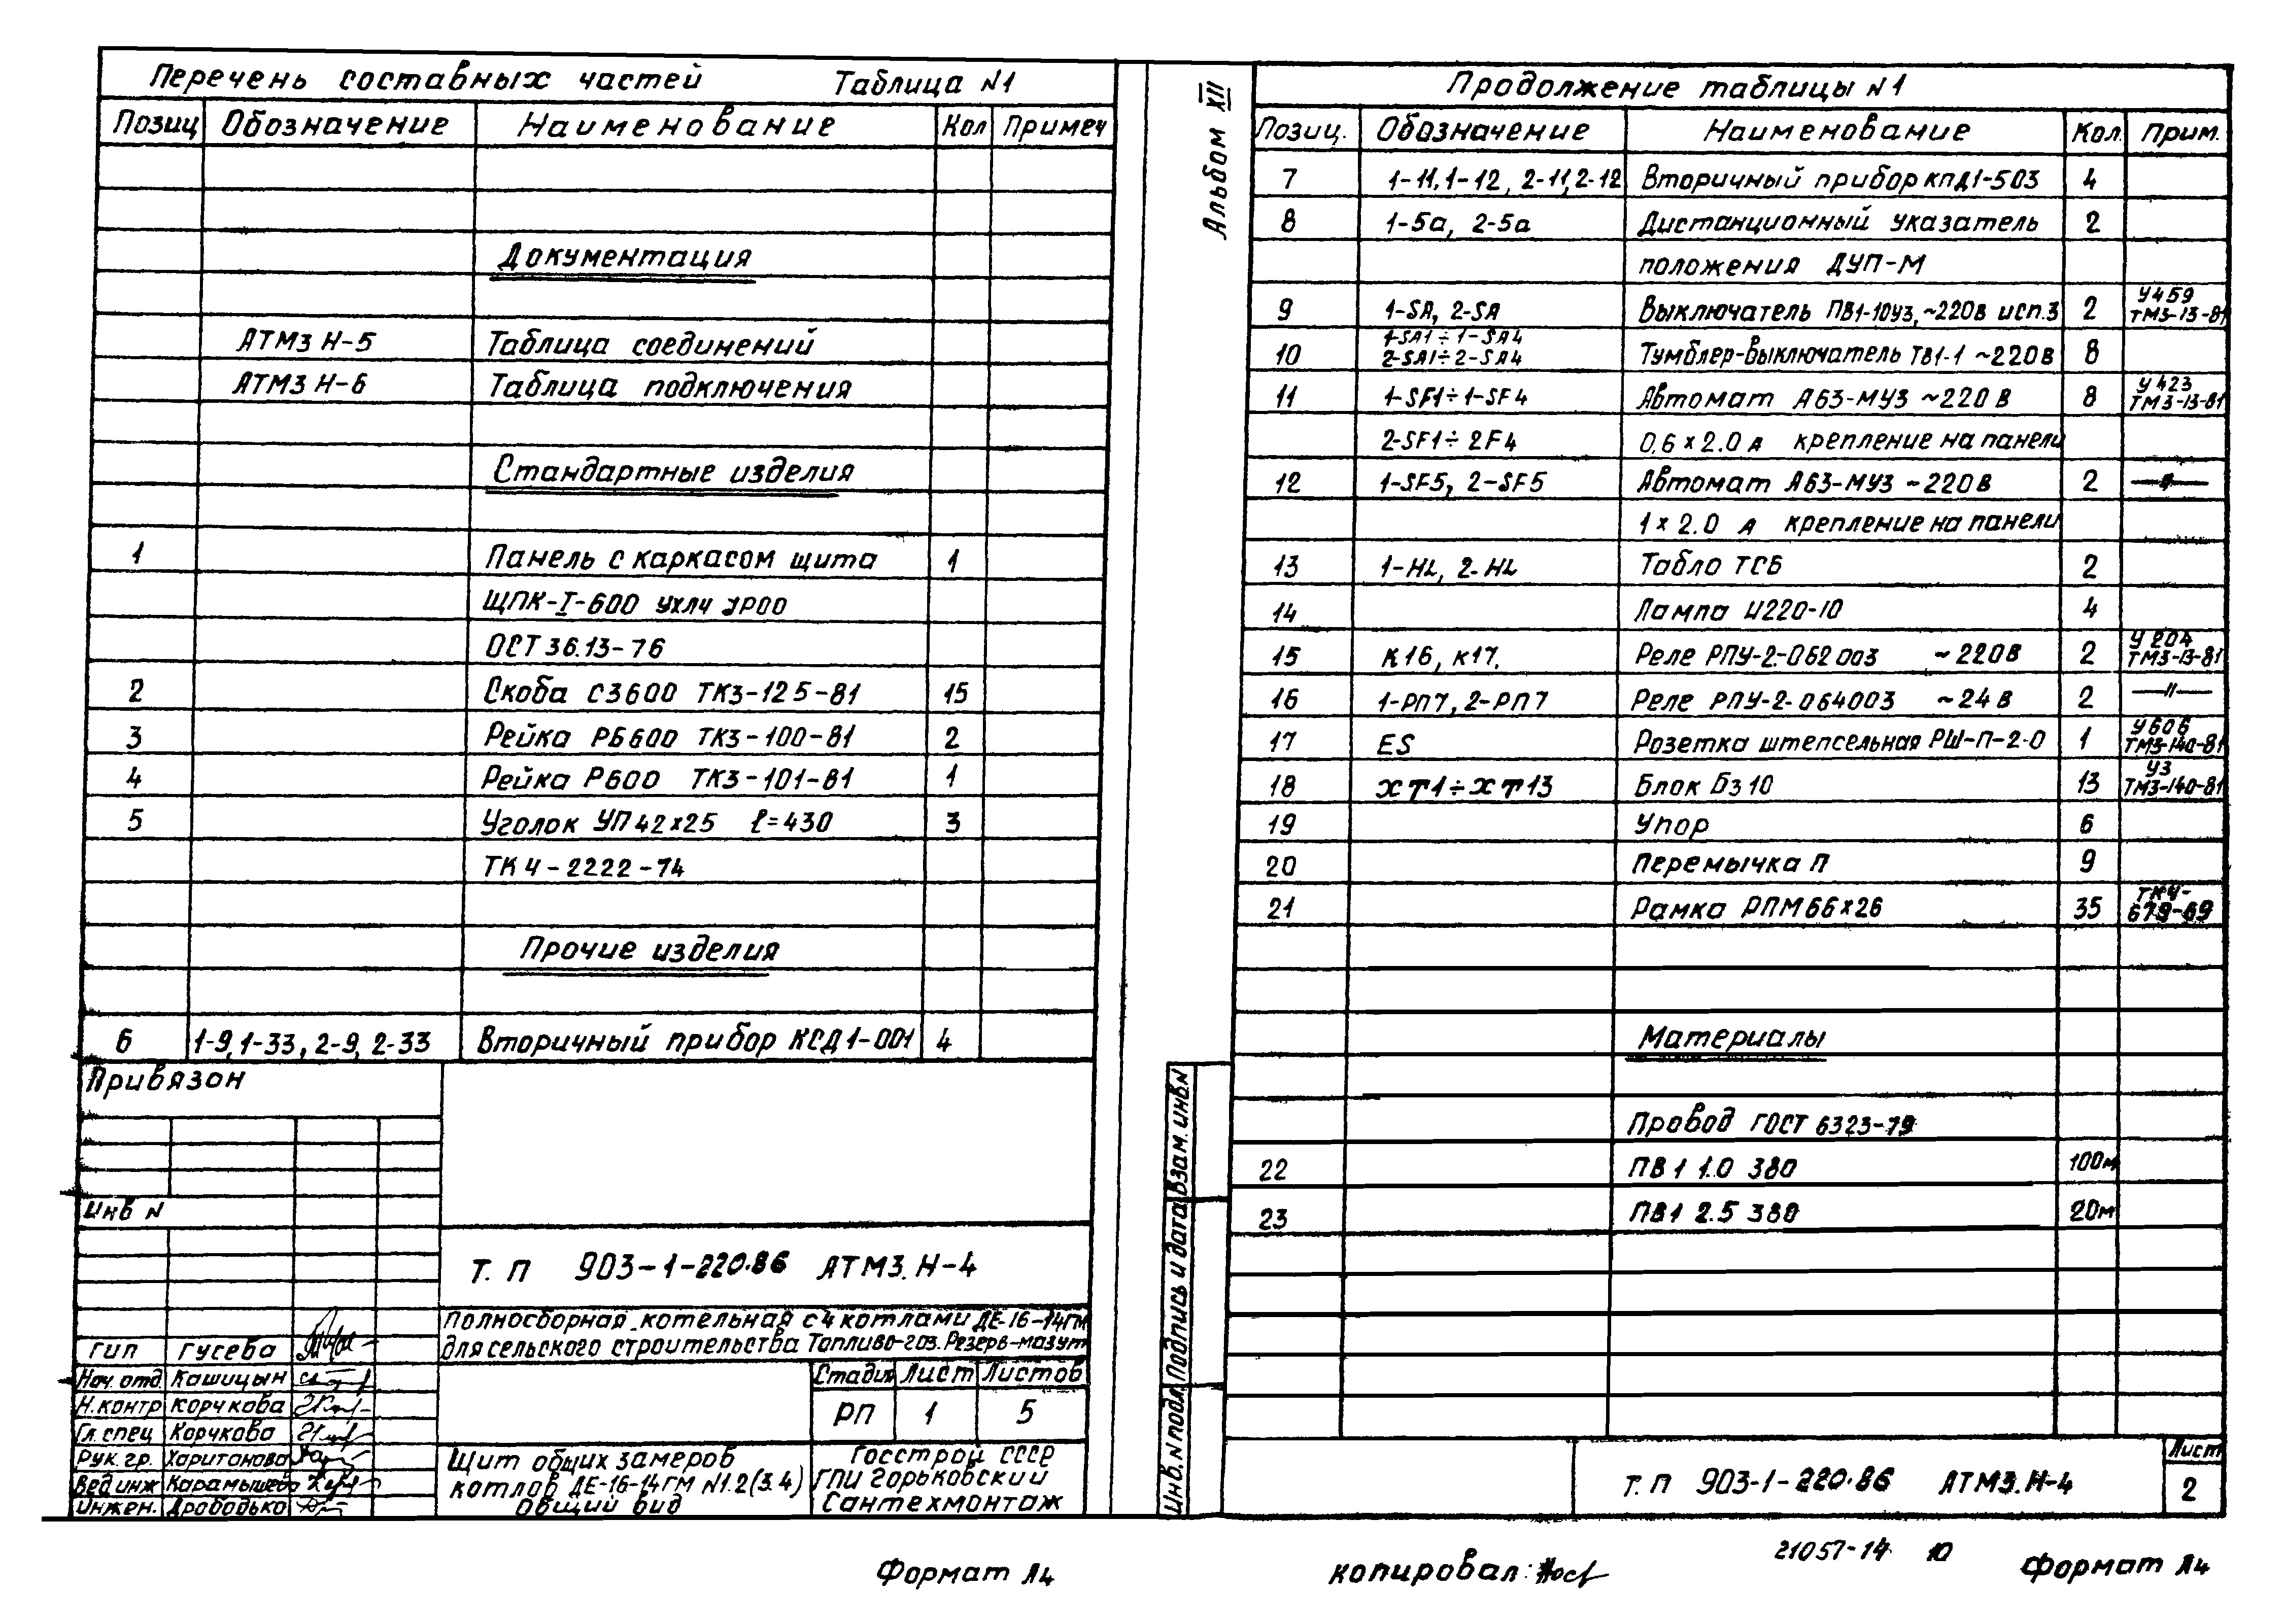 Перечень составных частей Таблица N1
Позиц Обозначение Наименование Кол Примеч
Документация
АТМ3 Н-5 Таблица соединений
АТМ3 Н-6 Таблица подключения
Стандартные изделия
1 Панель с каркасом щита 1
ЩПК-I-600 УХЛ4 УР00
ОСТ 36.13-76
2 Скоба С3600 ТК3-125-81 15
3 Рейка РБ600 ТК3-100-81 2
4 Рейка Р600 ТК3-101-81 1
5 Уголок УП42х25 ℓ=430 3
ТК4-2222-74
Прочие изделия
6 1-9, 1-33, 2-9, 2-33 Вторичный прибор КСД1-001 4
Привязон
Инв N
Т. П 903-1-220.86 АТМ3.Н-4
Полносборная котельная с 4 котлами ДЕ-16-14ГМ
для сельского строительства Топливо-газ. Резерв-мазут
ГИП Гусева
Нач. отд. Кашицын
Н.контр Корчкова
Гл. спец Корчкова
Рук. гр. Харитонова
Вед инж Карамышева
Инжен. Дрободько
Стадия Лист Листов
РП 1 5
Щит общих замеров
котлов ДЕ-16-14ГМ N1.2(3.4)
Общий вид
Госстрой СССР
ГПИ Горьковский
Сантехмонтаж
Формат А4
Альбом XII
Продолжение таблицы N1
Позиц. Обозначение Наименование Кол. Прим.
7 1-11, 1-12, 2-11, 2-12 Вторичный прибор КПД1-503 4
8 1-5а, 2-5а Дистанционный указатель 2
положения ДУП-М
9 1-SA, 2-SA Выключатель ПВ1-10У3, ~220в исп.3 2 У459 ТМ3-13-81
10 1-SA1÷1-SA4 2-SA1÷2-SA4 Тумблер-выключатель ТВ1-1 ~220в 8
11 1-SF1÷1-SF4 Автомат А63-МУ3 ~220в 8 У423 ТМ3-13-81
2-SF1÷2F4 0,6х2.0 А крепление на панели
12 1-SF5, 2-SF5 Автомат А63-МУ3 ~220в 2 —"—
1х2.0 А крепление на панели
13 1-HL, 2-HL Табло ТСБ 2
14 Лампа Ц220-10 4
15 К16, К17. Реле РПУ-2-062003 ~220в 2 У204 ТМ3-13-81
16 1-РП7, 2-РП7 Реле РПУ-2-064003 ~24в 2 —"—
17 ES Розетка штепсельная РШ-П-2-0 1 У606 ТМ3-140-81
18 ХТ1÷ХТ13 Блок Бз 10 13 У3 ТМ3-140-81
19 Упор 6
20 Перемычка П 9
21 Рамка РПМ 66х26 35 ТК4-679-69
Материалы
Провод ГОСТ 6323-79
22 ПВ1 1.0 380 100м
23 ПВ1 2.5 380 20м
Взам. инв.N
Подпись и дата
Инв. N подл.
Т. П 903-1-220.86 АТМ3.Н-4
Лист
2
21057-14 10
копировал: Формат А4